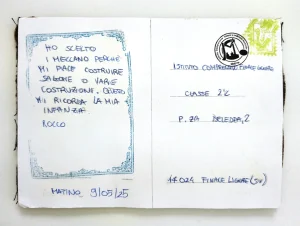 HO SCELTO
I MECCANO PERCHÉ
MI PIACE COSTRUIRE
SAGOME O VARIE
COSTRUZIONE. QUESTO
MI RICORDA LA MIA
INFANZIA.
ROCCO
MATINO, 9/05/25
ISTITUTO COMPRENSIVO FINALE LIGURE
CLASSE 2°C
P.ZA
17024 FINALE LIGURE (SV)